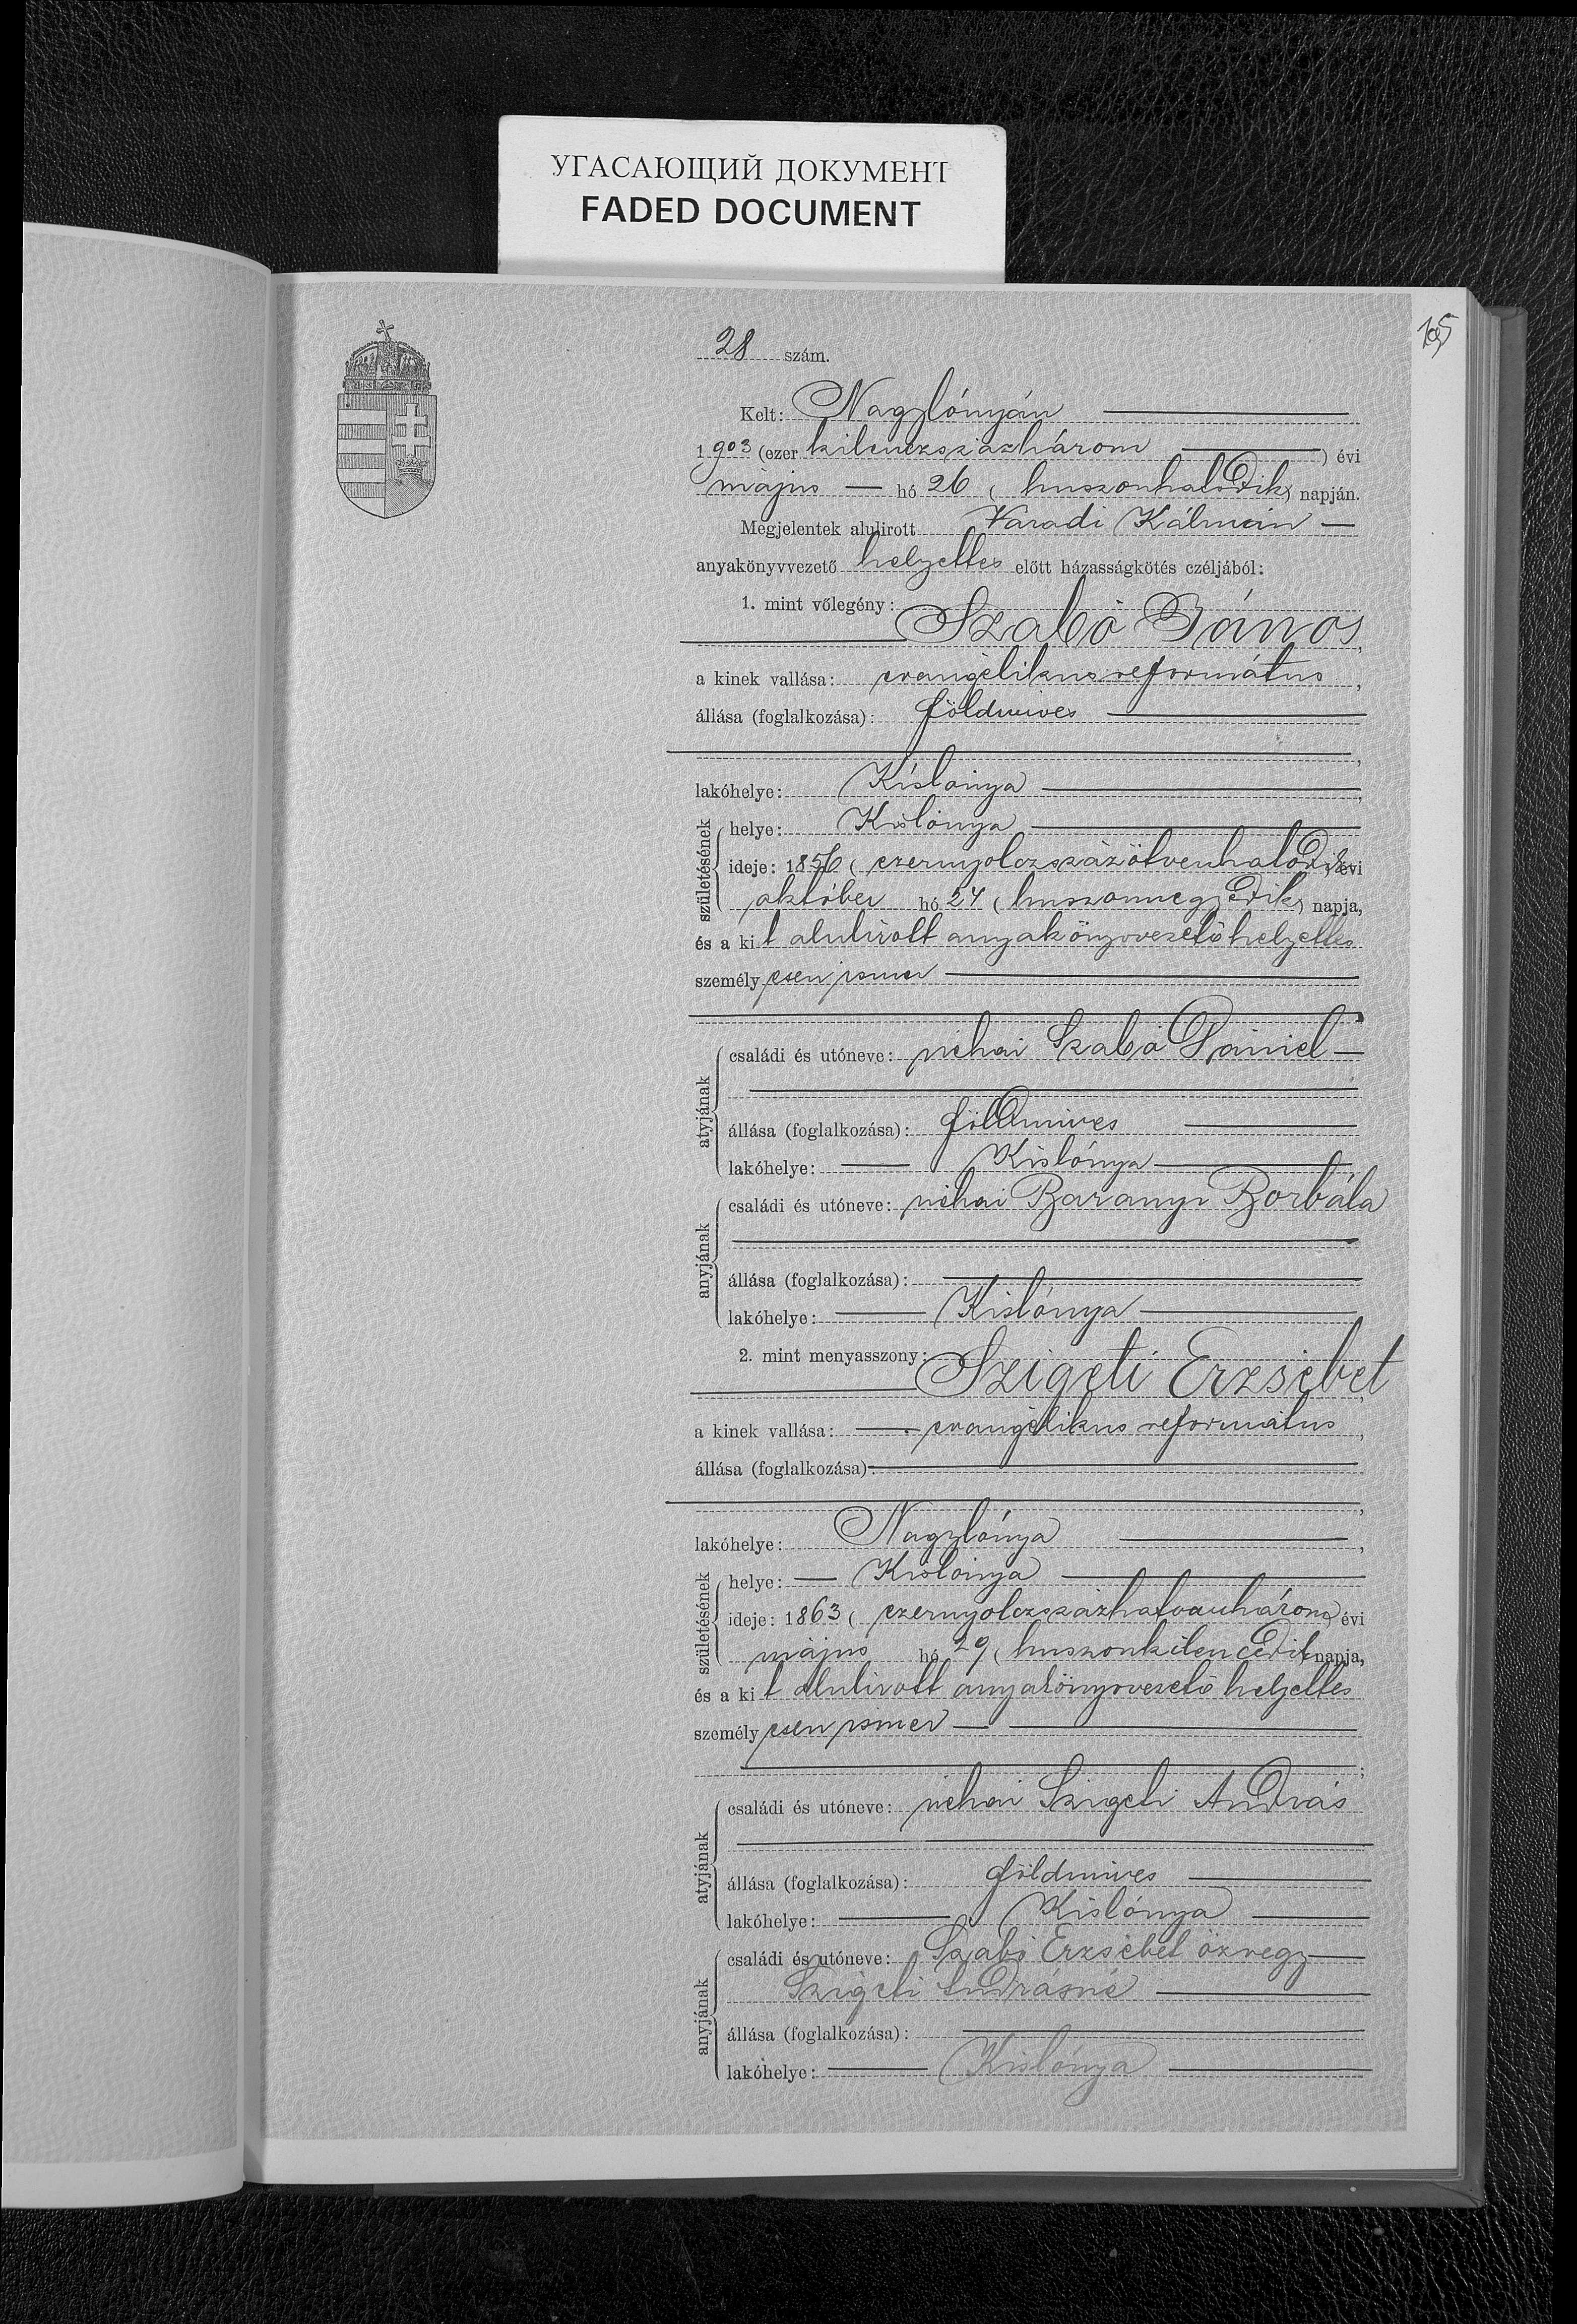 УГАСАЮЩИЙ ДОКУМЕНТ
FADED DOCUMENT
28 szám.
Kelt: Nagylónyán
1903 (ezer kilenczszázhárom) évi
május hó 26 (huszonhatodik) napján.
Megjelentek alulirott Váradi Kálmán
anyakönyvvezető helyettes előtt házasságkötés czéljából:
1. mint vőlegény:
Szabó János,
a kinek vallása: evangélikus református,
állása (foglalkozása): földmives
lakóhelye: Kislónya,
születésének
helye: Kislónya
ideje: 1856 (ezernyolczszázötvenhatodik) évi
október hó 24 (huszonnegyedik) napja,
és a kit alulirott anyakönyvvezető helyettes
személyesen ismer
atyjának
családi és utóneve: néhai Szabó Dániel
állása (foglalkozása): földmives
lakóhelye: Kislónya
anyjának
családi és utóneve: néhai Baranyi Borbála
állása (foglalkozása):
lakóhelye: Kislónya
2. mint menyasszony:
Szigeti Erzsébet
a kinek vallása: evangélikus református,
állása (foglalkozása):
lakóhelye: Nagylónya,
születésének
helye: Kislónya
ideje: 1863 (ezernyolczszázhatvanhárom) évi
május hó 29 (huszonkilenczedik) napja,
és a kit alulirott anyakönyvvezető helyettes
személyesen ismer
atyjának
családi és utóneve: néhai Szigeti András
állása (foglalkozása): földmives
lakóhelye: Kislónya
anyjának
családi és utóneve: Szabó Erzsébet özvegy
Szigeti Andrásné
állása (foglalkozása):
lakóhelye: Kislónya